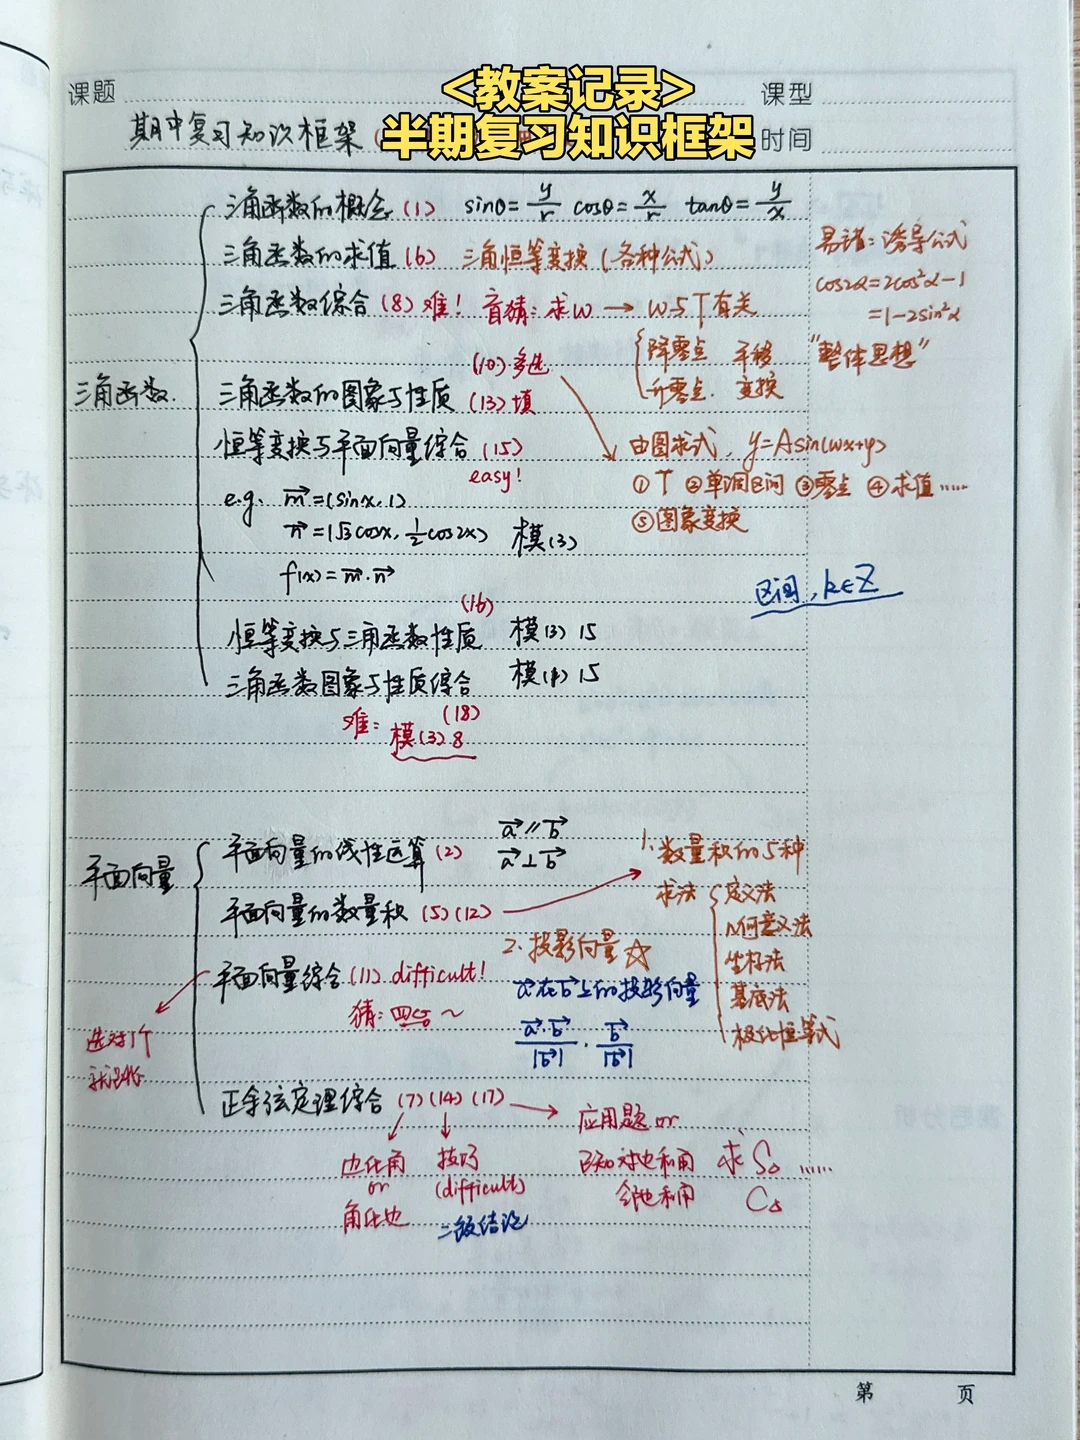 <教案记录>
半期复习知识框架
课题
课型
期中复习知识框架
时间
三角函数的概念 (1) sinθ=y/r cosθ=x/r tanθ=y/x
三角函数的求值 (6) 三角恒等变换 (各种公式)
易错: 诱导公式
cos2α=2cos²α-1
=1-2sin²α
"整体思想"
三角函数综合 (8) 难! 盲猜: 求w → w与T有关
降零点 平移
升零点. 变换
三角函数.
(10)多选
三角函数的图象与性质 (13)填
恒等变换与平面向量综合 (15)
easy!
由图求式, y=Asin(wx+φ)
① T ②单调区间 ③零点 ④求值……
⑤图象变换
e.g. m=(sinx,1)
n=(√3cosx, ½cos2x) 模(3)
f(x)=m·n
区间, k∈Z
(16)
恒等变换与三角函数性质 模(3) 15
三角函数图象与性质综合 模(1) 15
(18)
难: 模(3).8
平面向量
平面向量的线性运算 (2)
a∥b
a⊥b
平面向量的数量积 (5)(12)
1.数量积的5种
求法
定义法
几何意义法
坐标法
基底法
极化恒等式
2.投影向量☆
a在b上的投影向量
a·b/|b| · b/|b|
平面向量综合 (11) difficult!
猜: 四心~
选对1个
正余弦定理综合 (7)(14)(17)
边化角
or
角化边
技巧
(difficult)
二级结论
应用题 or
已知对边和角
邻边和角
求 S△ ……
C△
第 页